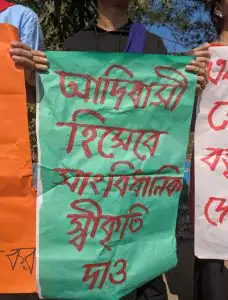 আদিবাসী
হিসেবে
সাংবিধানিক
স্বীকৃতি
দাও
কর